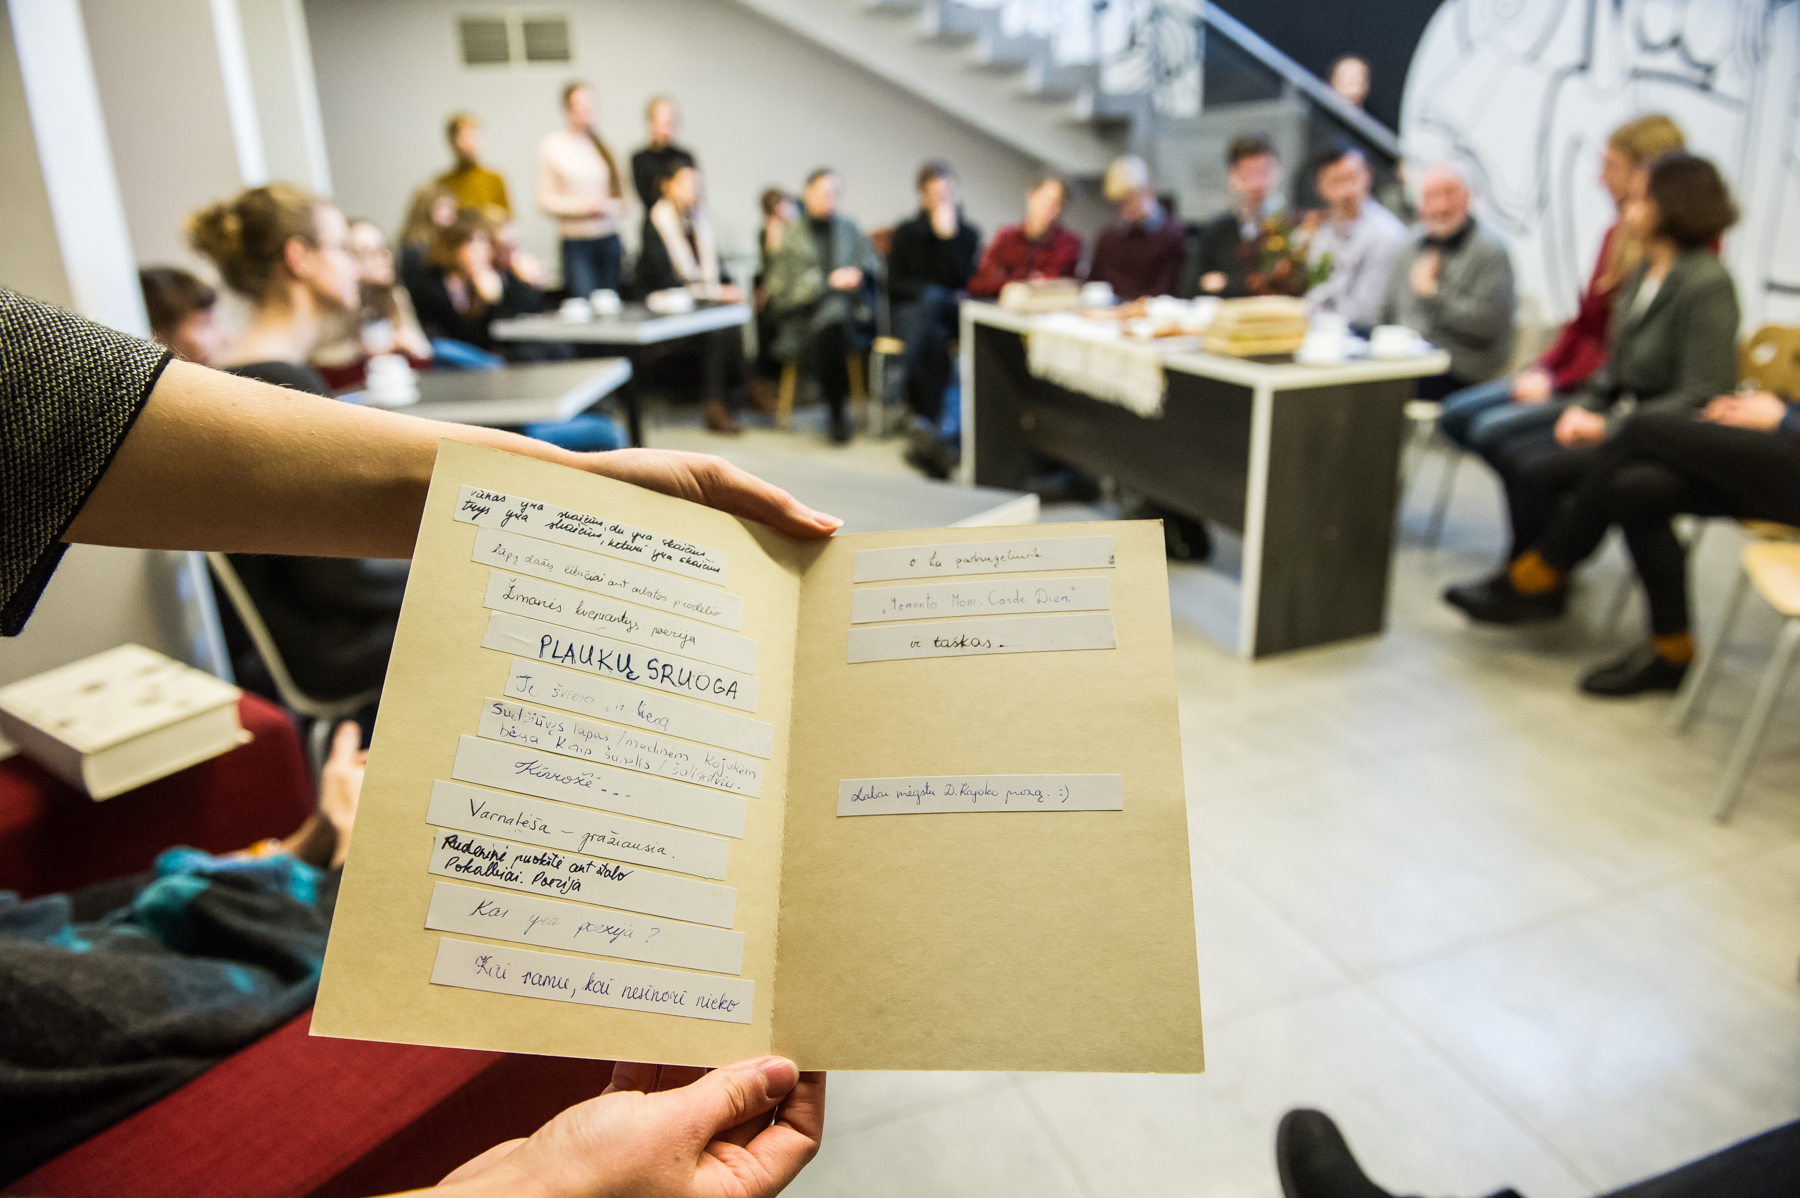 vienas yra skaičius, du yra skaičius
trys yra skaičius, keturi yra skaičius
lapų dažų likučiai ant
Žmonės kvepiantys poezija
PLAUKŲ SRUOGA
Ji šviesa ir tiesą
Sudžiūvęs lapas / medinėm kojukėm
bėga kaip šunelis / šaligatviu.
Kūrožė...
Varnalėša – gražiausia.
Rudeninė puokštė ant stalo
Pokalbiai. Poezija
Kas yra poezija?
Kai ramu, kai nesinori nieko
o tu
„Memento Mori. Carpe Diem."
ir taškas.
Labai mėgstu D. Kajoko prozą. :)